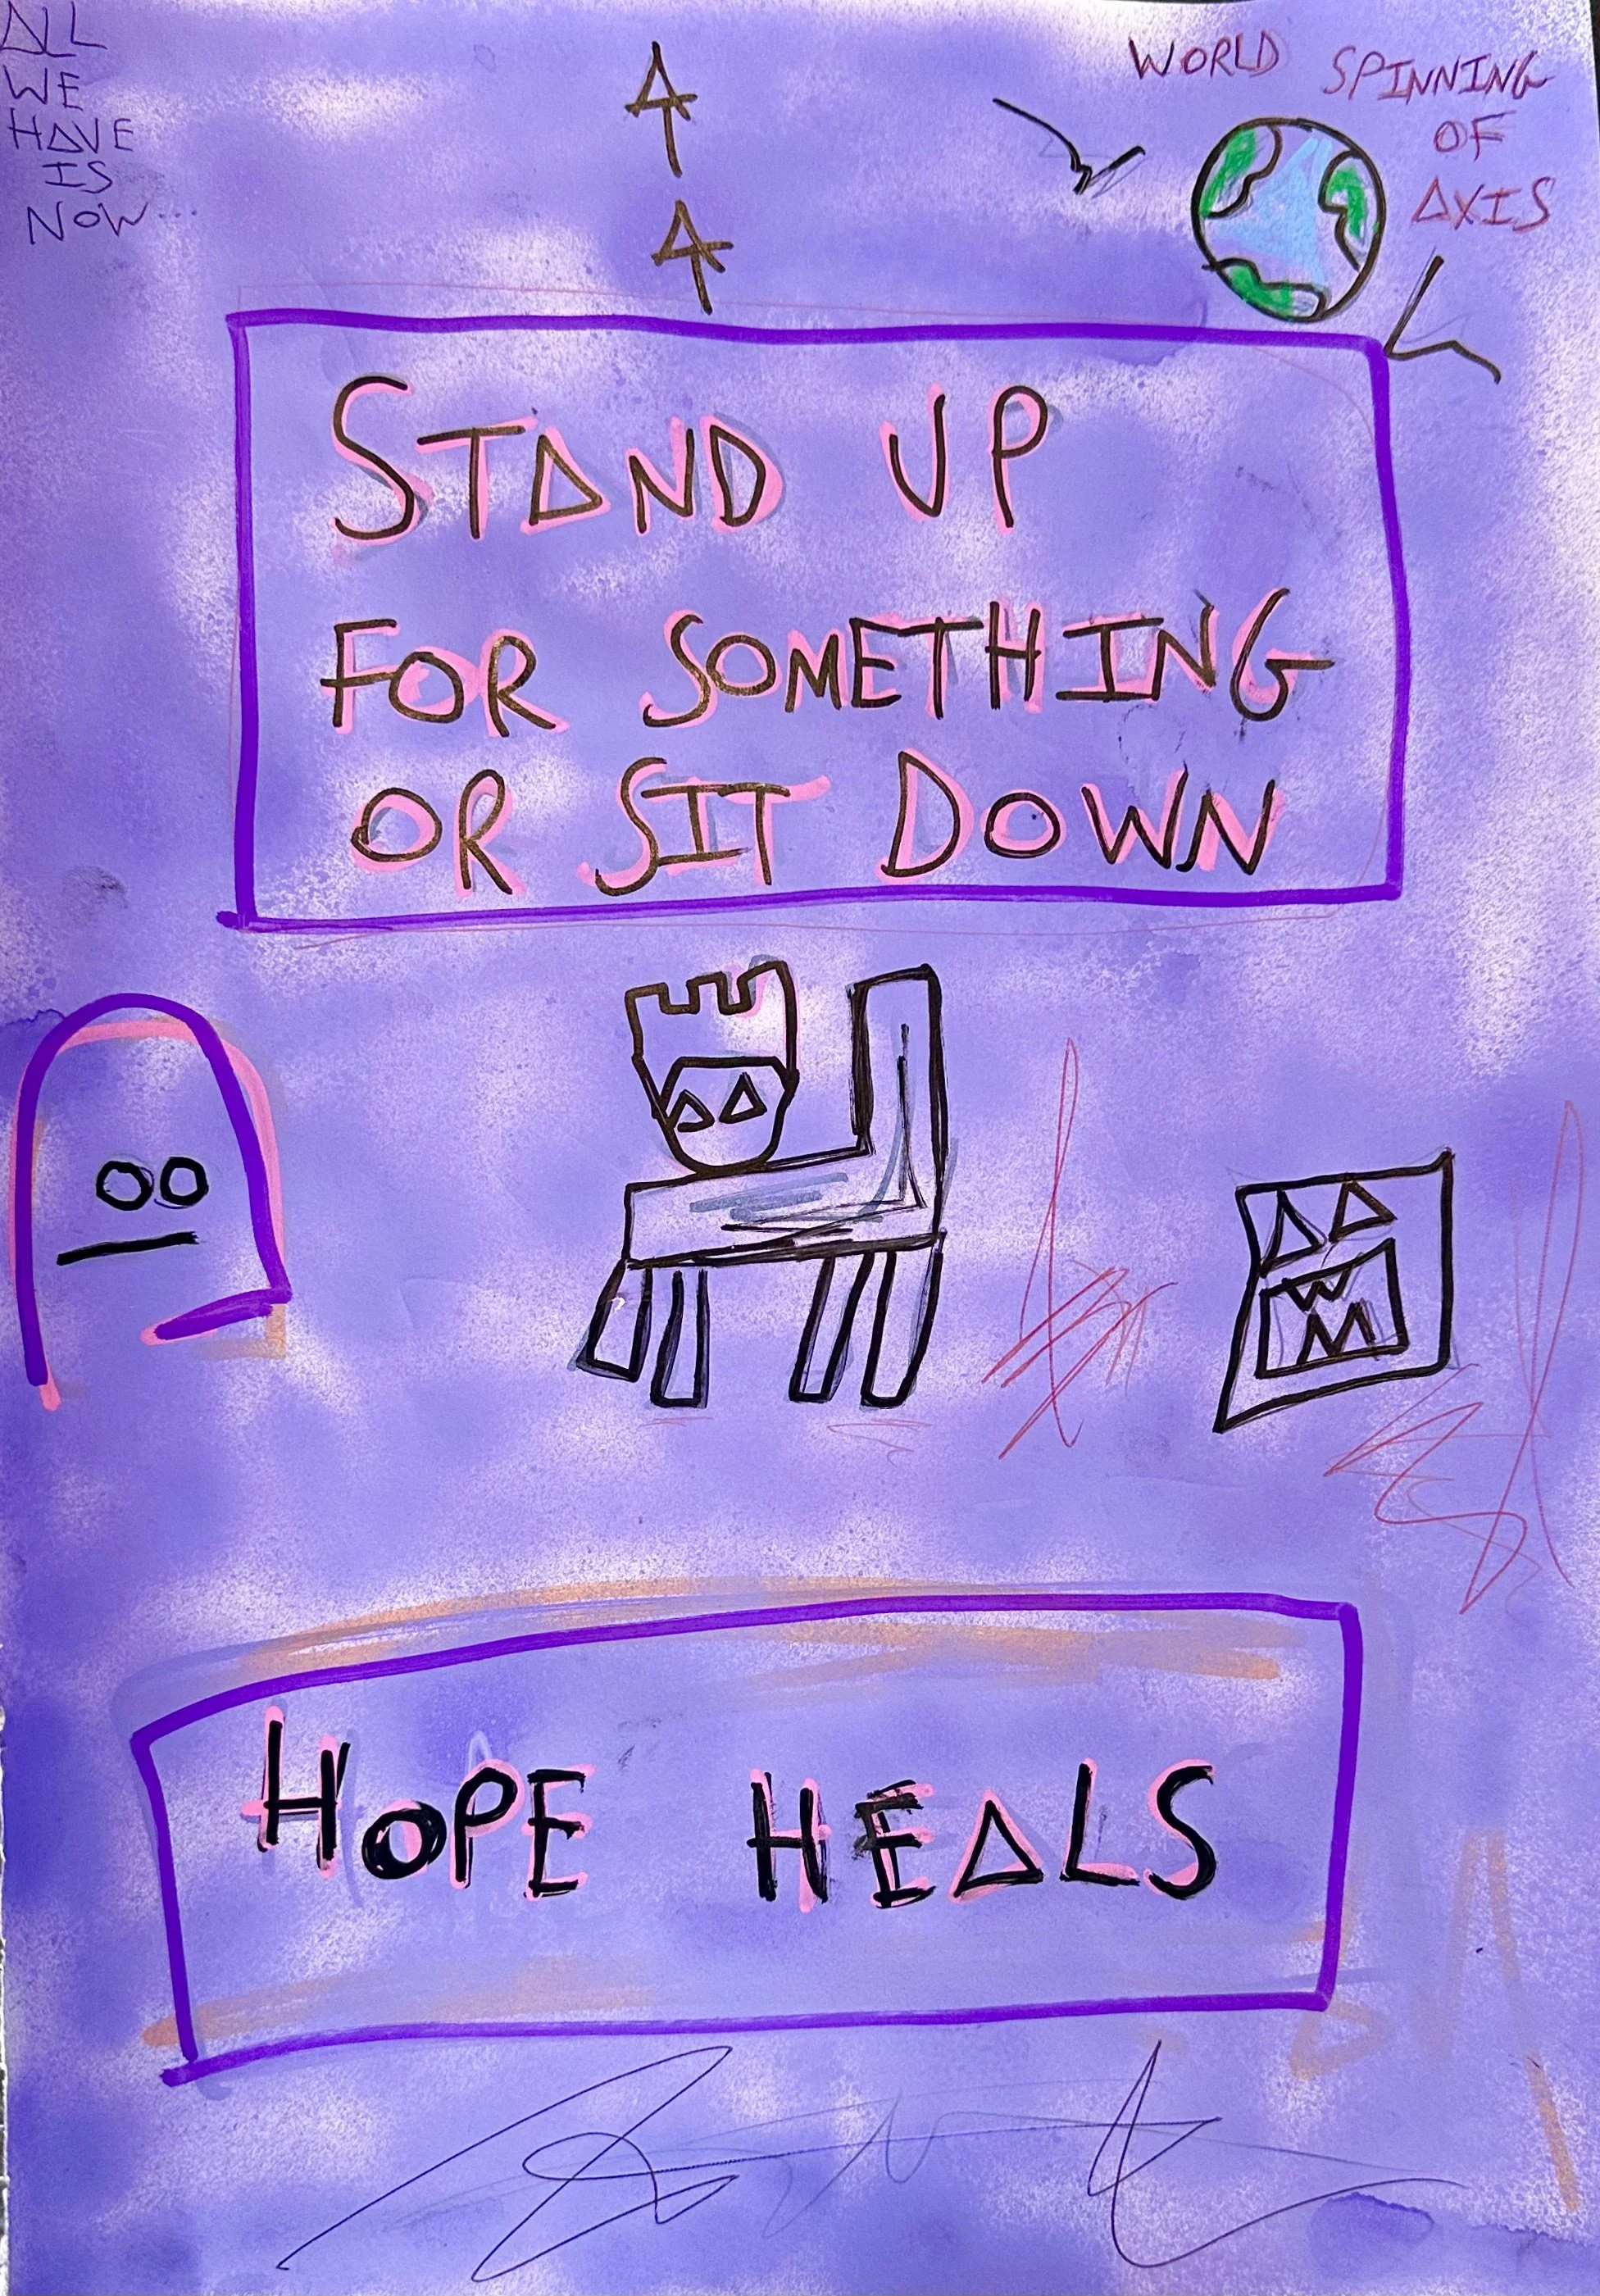 ALL
WE
HAVE
IS
NOW...
WORLD SPINNING
OF
AXIS
STAND UP
FOR SOMETHING
OR SIT DOWN
HOPE HEALS